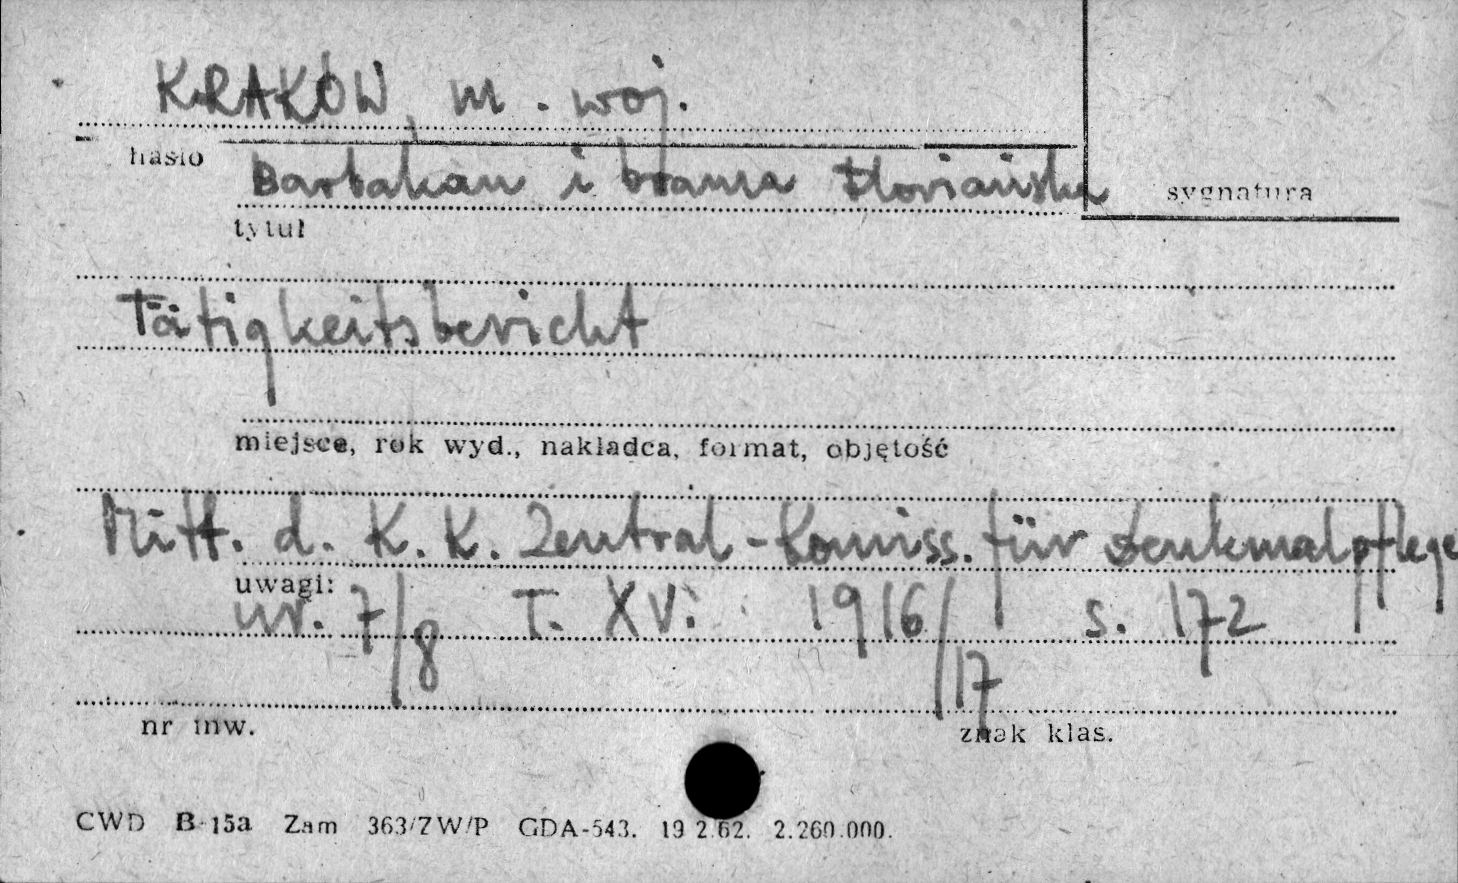 KRAKÓW, m. woj.
hasło
Barbakan i brama Floriańska
sygnatura
tytuł
Tätigkeitsbericht
miejsce, rok wyd., nakładca, format, objętość
Mitt. d. K. K. Zentral-Komiss. für Denkmalpflege
uwagi:
nr. 7/8 T. XV. 1916/17 s. 172
nr inw.
znak klas.
CWD B-15a Zam 363/ZW/P GDA-543. 19 2.62. 2.260.000.